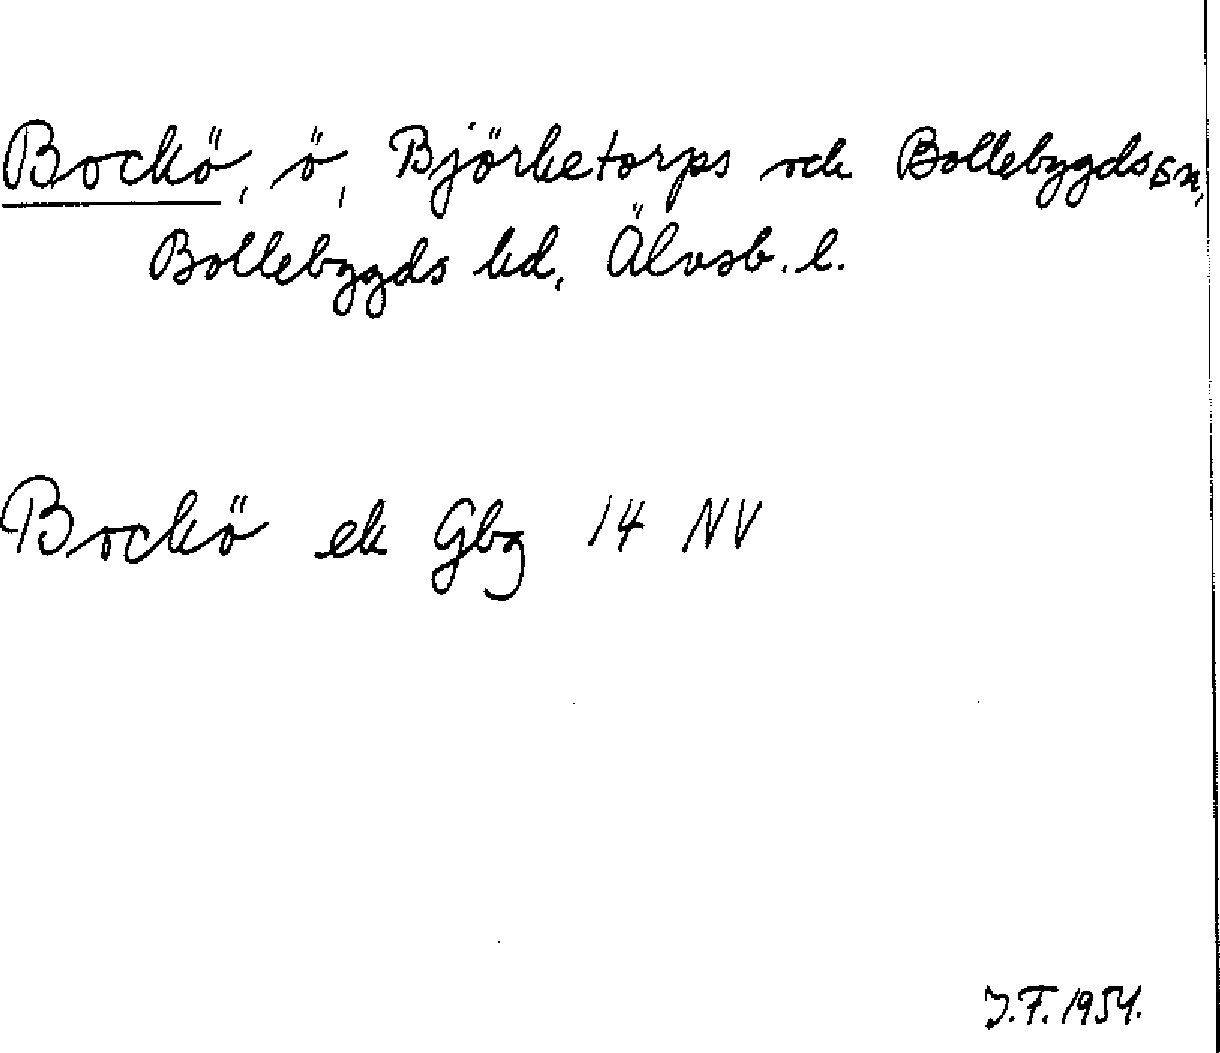 Bockö, ö, Björketorps och Bollebygds sn,
Bollebygds hd, Älvsb. l.
Bockö ek Gbg 14 NV
J.F. 1954.